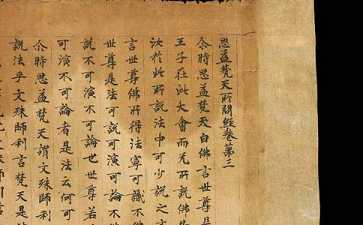 思益梵天所問經卷第三
尒時思益梵天白佛言世尊是
王子在此大會而无所說佛
汝於此所說法中可少說之文
言世尊佛所得法寧可識不佛
世尊是法可說可演可論不佛
說不可演不可論世尊若
可演不可論者是法云何可
尒時思益梵天謂文殊師利
說法乎文殊師利言梵天是